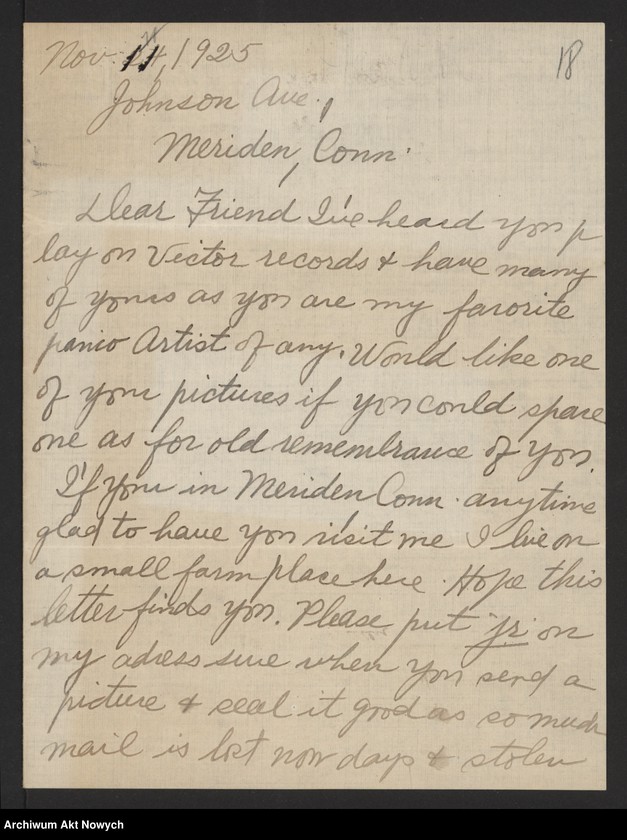 Nov. 11, 1925
18
Johnson Ave.,
Meriden, Conn.
Dear Friend I've heard you p
lay on Victor records & have many
of yours as you are my favorite
panio Artist of any. Would like one
of your pictures if you could spare
one as for old remembrance of you.
If your in Meriden Conn. anytime
glad to have you visit me I live on
a small farm place here. Hope this
letter finds you. Please put "jr" on
my adress sure when you send a
picture & seal it good as so much
mail is lost now days & stolen
Archiwum Akt Nowych